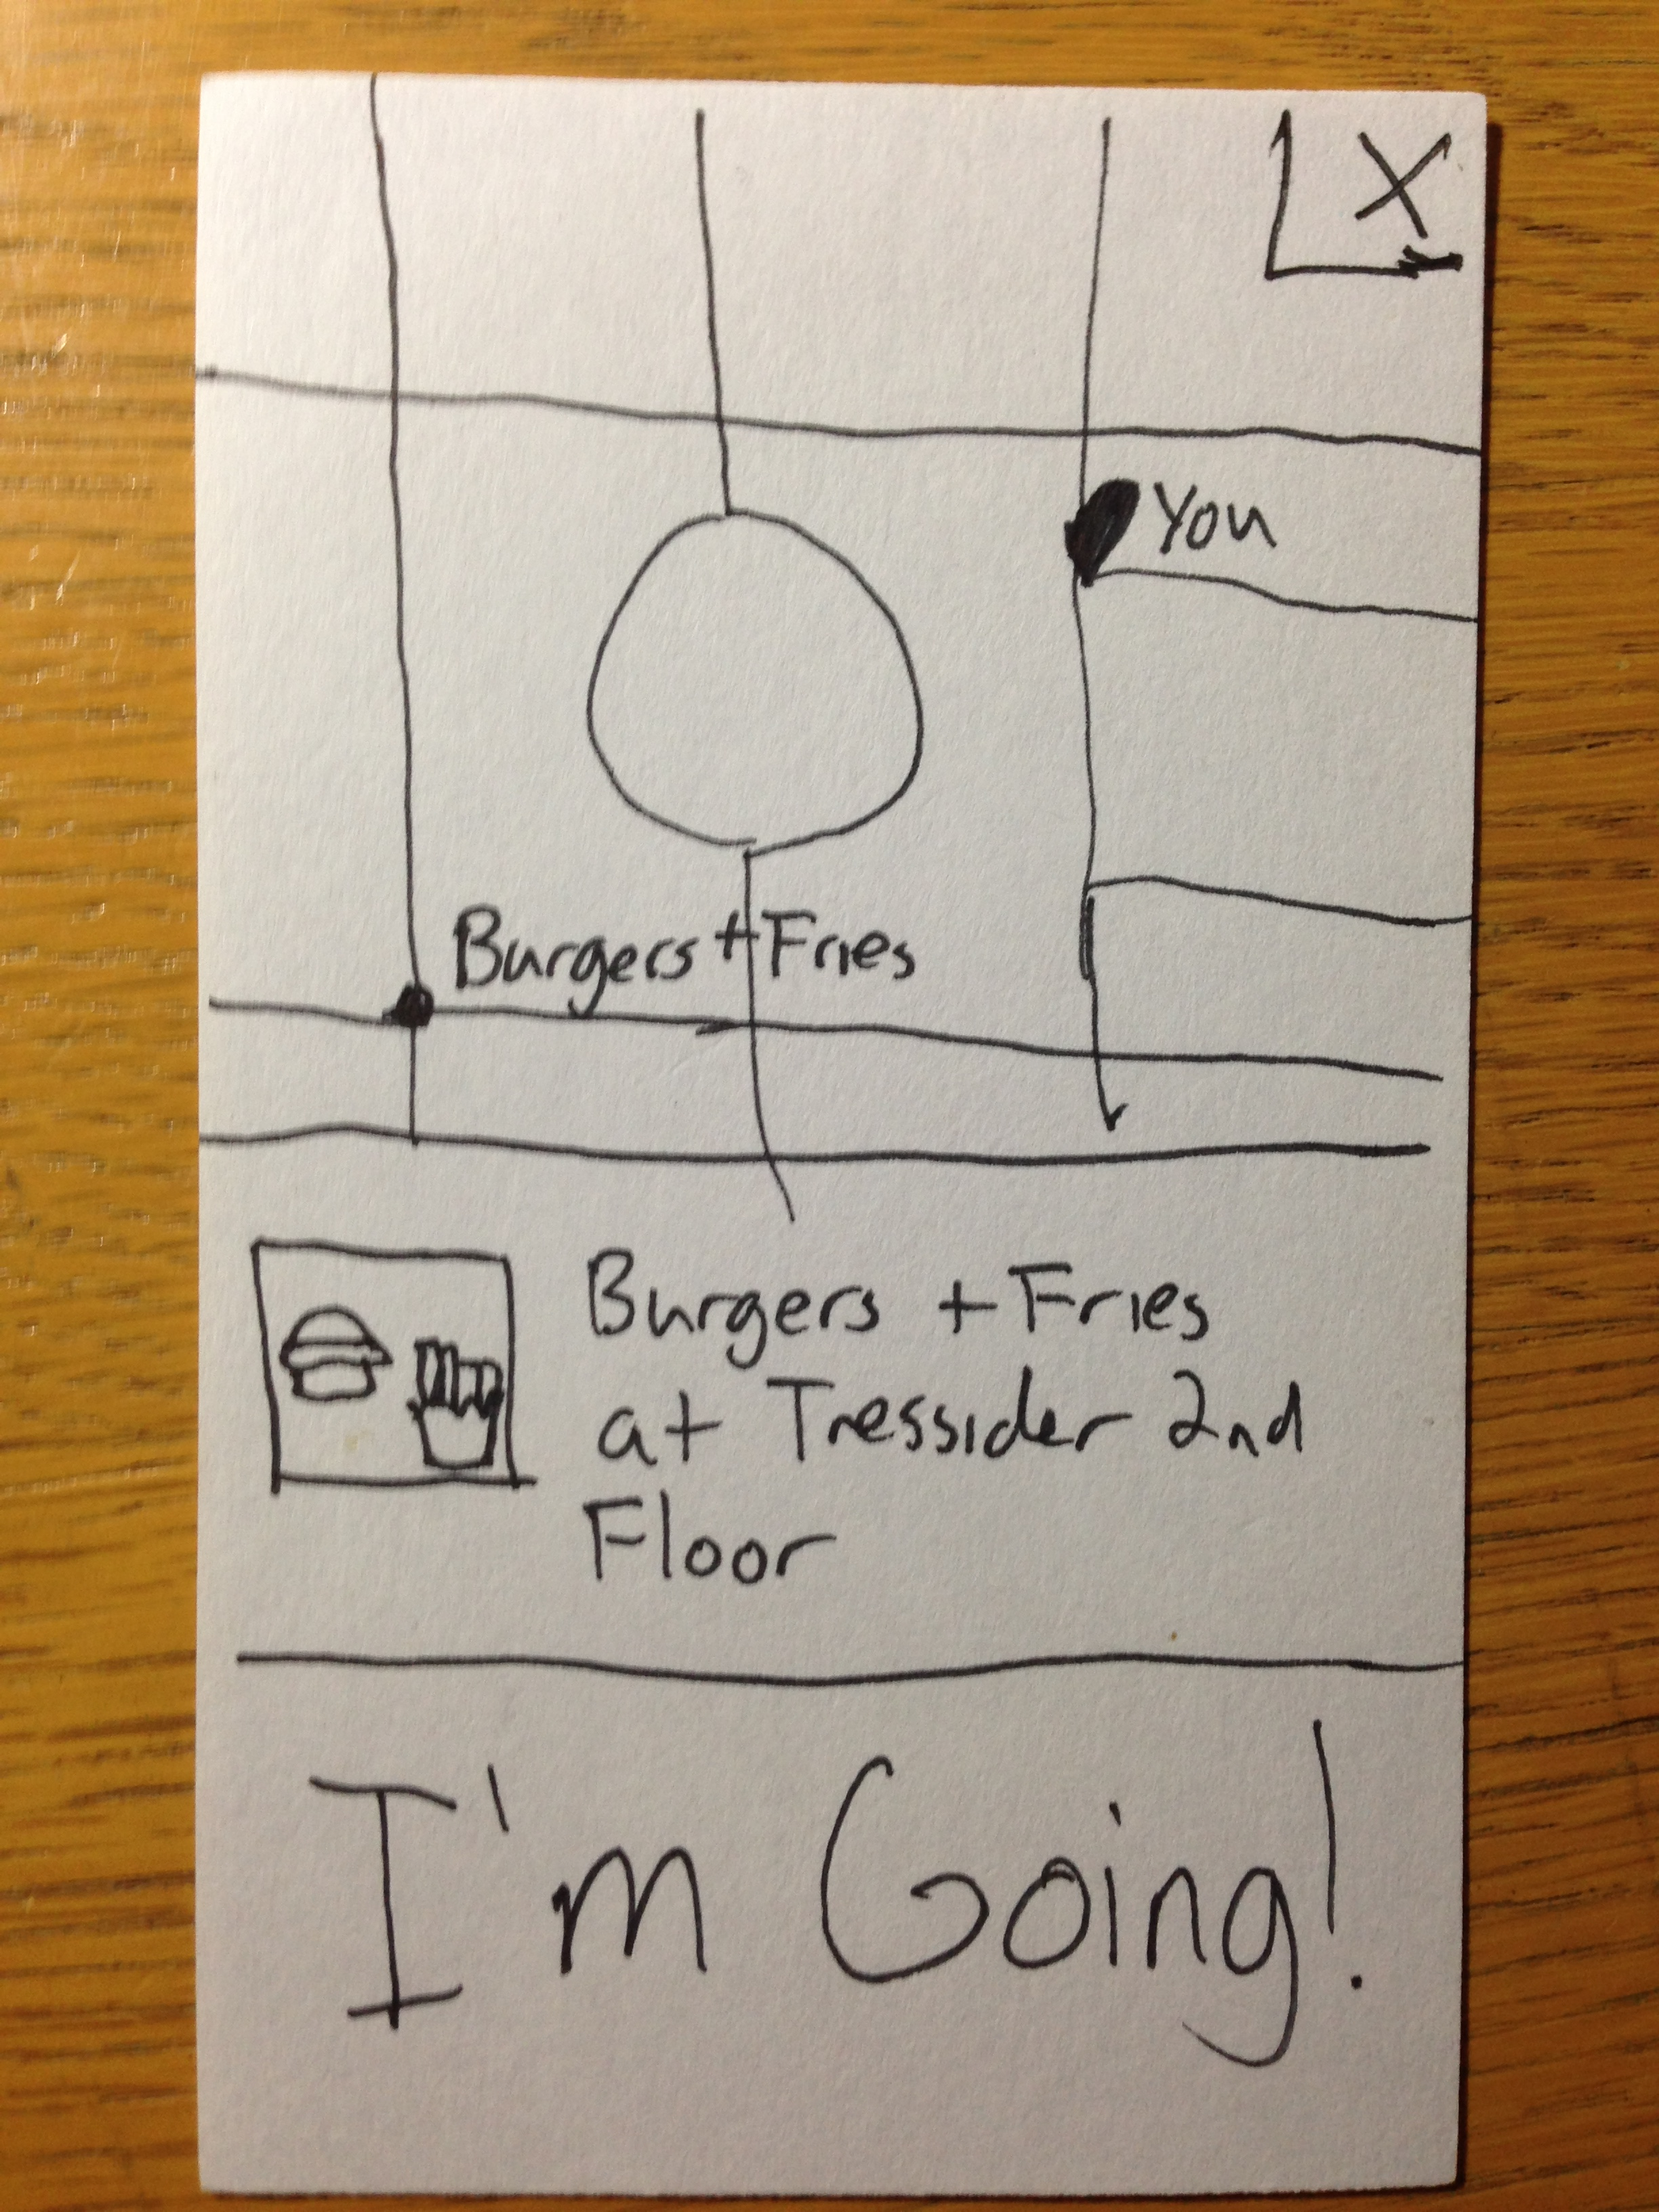 X
You
Burgers + Fries
Burgers + Fries
at Tressider 2nd
Floor
I'm Going!